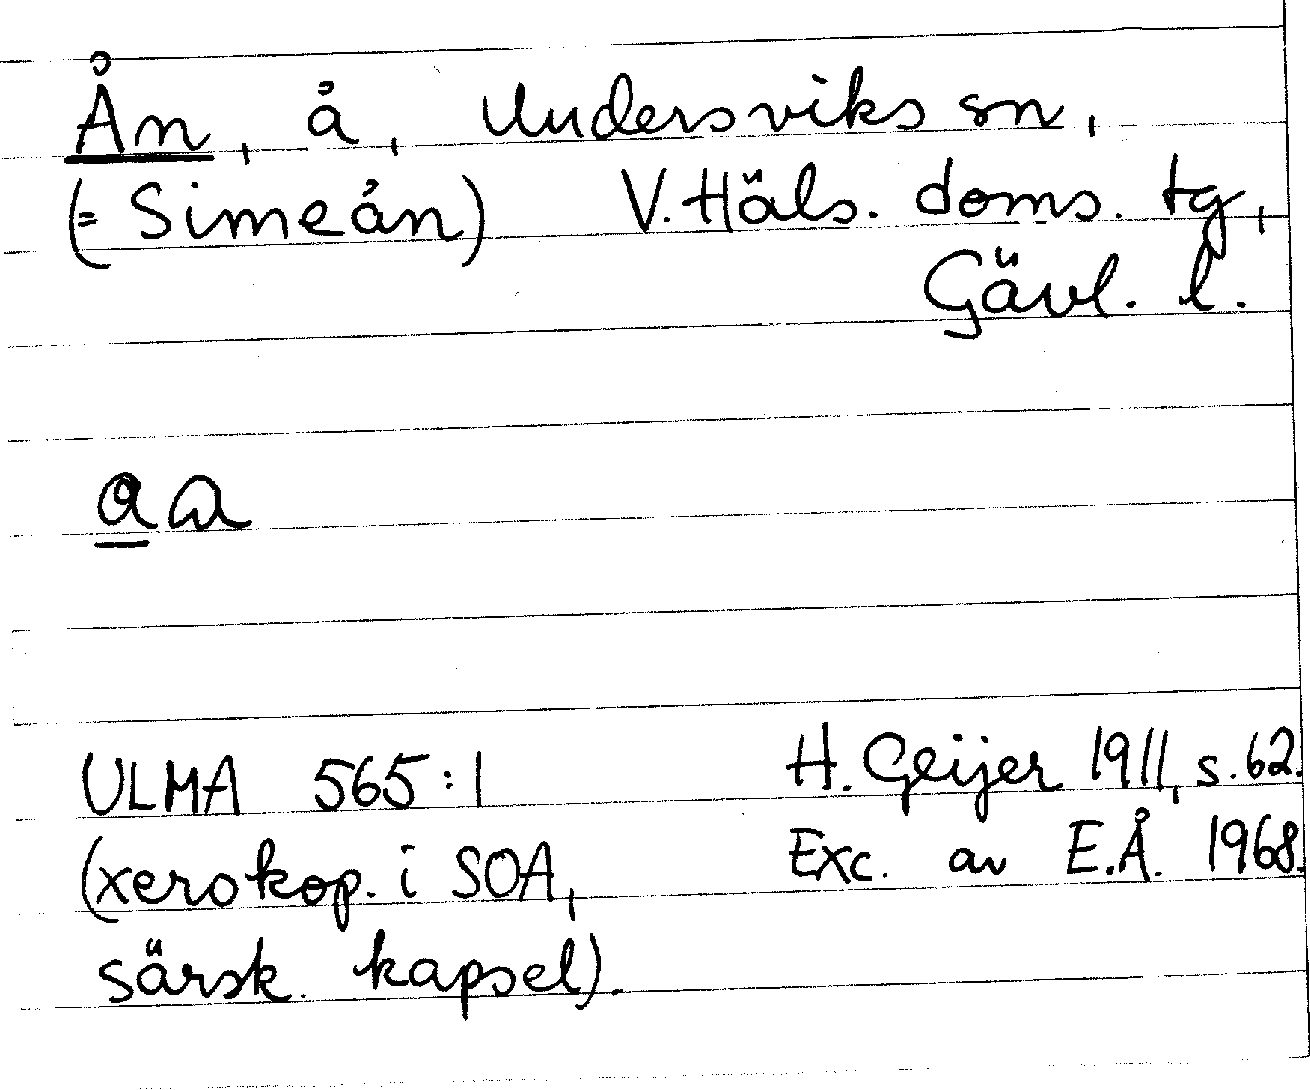 Ån, å, Undersviks sn,
(= Simeån) V. Häls. doms. tg,
Gävl. l.
ULMA 565:1 H. Geijer 1911, s. 62.
(xerokop. i SOA, Exc. av E.Å. 1968.
särsk. kapsel).